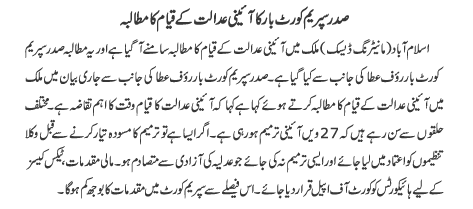 صدر سپریم کورٹ بار کا آئینی عدالت کے قیام کا مطالبہ
اسلام آباد (مانیٹرنگ ڈیسک) ملک میں آئینی عدالت کے قیام کا مطالبہ سامنے آ گیا ہے اور یہ مطالبہ صدر سپریم
کورٹ بار رؤف عطا کی جانب سے کیا گیا ہے۔ صدر سپریم کورٹ بار رؤف عطا کی جانب سے جاری بیان میں ملک
میں آئینی عدالت کے قیام کا مطالبہ کرتے ہوئے کہا ہے کہا کہ آئینی عدالت کا قیام وقت کا اہم تقاضہ ہے۔ مختلف
حلقوں سے سن رہے ہیں کہ 27 ویں آئینی ترمیم ہو رہی ہے۔ اگر ایسا ہے تو ترمیم کا مسودہ تیار کرنے سے قبل وکلا
تنظیموں کو اعتماد میں لیا جائے اور ایسی ترمیم نہ کی جائے جو عدلیہ کی آزادی سے متصادم ہو۔ مالی مقدمات، ٹیکس کیسز
کے لیے ہائیکورٹس کو کورٹ آف اپیل قرار دیا جائے۔ اس فیصلے سے سپریم کورٹ میں مقدمات کا بوجھ کم ہوگا۔